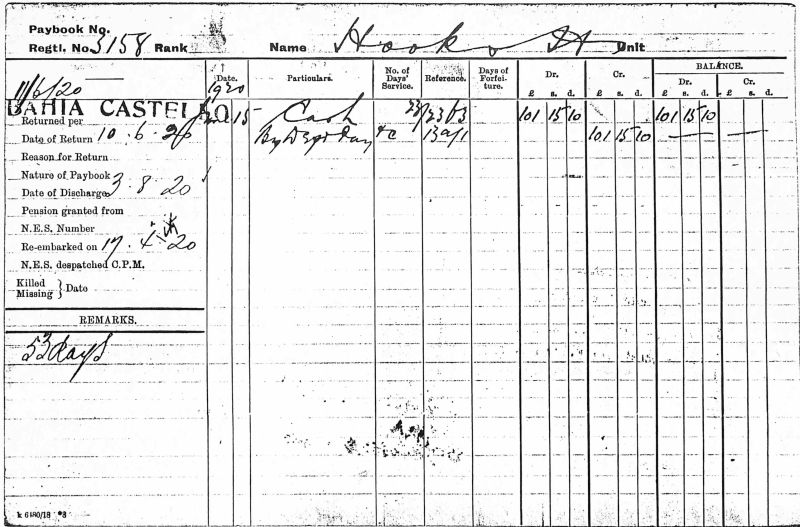 Paybook No.
Regtl. No. 3158 Rank Name Hook Unit
11/6/20
BAHIA CASTELLO
Returned per
Date of Return 10.6.20
Reason for Return
Nature of Paybook
Date of Discharge 3.8.20
Pension granted from
N.E.S. Number
Re-embarked on 17.4.20
N.E.S. despatched C.P.M.
Killed
Missing } Date
REMARKS.
53 days
Date. Particulars. No. of Days' Service. Reference. Days of Forfeiture. Dr. Cr. BALANCE.
Dr. Cr.
£ s. d. £ s. d. £ s. d. £ s. d.
1920
15 Cash 23/2363 101 15 10 101 15 10
By Dept Pay &c 101 15 10
k 6480/18 *3